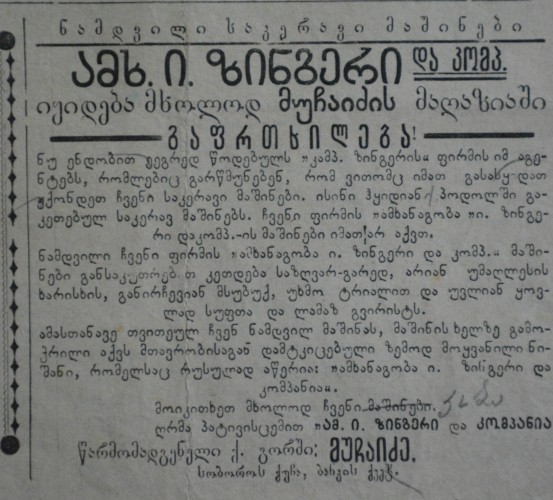 ნამდვილი საკერავი მაშინები
ამხ. ი. ზინგერი და კომპ.
იყიდება მხოლოდ მუჩაიძის მაღაზიაში
გაფრთხილება!
ნუ ენდობით ეგრედ წოდებულს „კამპ. ზინგერის“ ფირმის იმ აგე-
ნტებს, რომლებიც გარწმუნებენ, რომ ვითომც იმათ გასასყიდათ
ჰქონდეთ ჩვენი საკერავი მაშინები. ისინი ჰყიდიან პოდოლში გა-
კეთებულ საკერავ მაშინებს. ჩვენი ფირმის „ამხანაგობა „ი. ზინგე-
რი დაკომპ.-ის მაშინები იმათ არ აქვთ.
ნამდვილი ჩვენი ფირმის „ამხანაგობა ი. ზინგერი და კომპ.“ მაში-
ნები განსაკუთრებით კეთდება საზღვარ-გარედ, არიან უმაღლესის
ხარისხის, განირჩევიან მსუბუქ, უხმო ტრიალით და უვლიან ყოვ-
ლად სუფთა და ლამაზ გვირისტს.
ამასთანავე თვითეულ ჩვენ ნამდვილ მაშინას, მაშინის ხელზე გამო-
ჭრილი აქვს მთავრობისაგან დამტკიცებული ზემოდ მოყვანილი ნი-
შანი, რომელსაც რუსულად აწერია: „ამხანაგობა ი. ზინგერი და
კომპანია“.
მოიკითხეთ მხოლოდ ჩვენი მაშინები.
ღრმა პატივისცემით „ამ. ი. ზინგერი და კომპანია
წარმომადგენელი ქ. გორში: მუჩაიძე.
სობოროს ქუჩა,